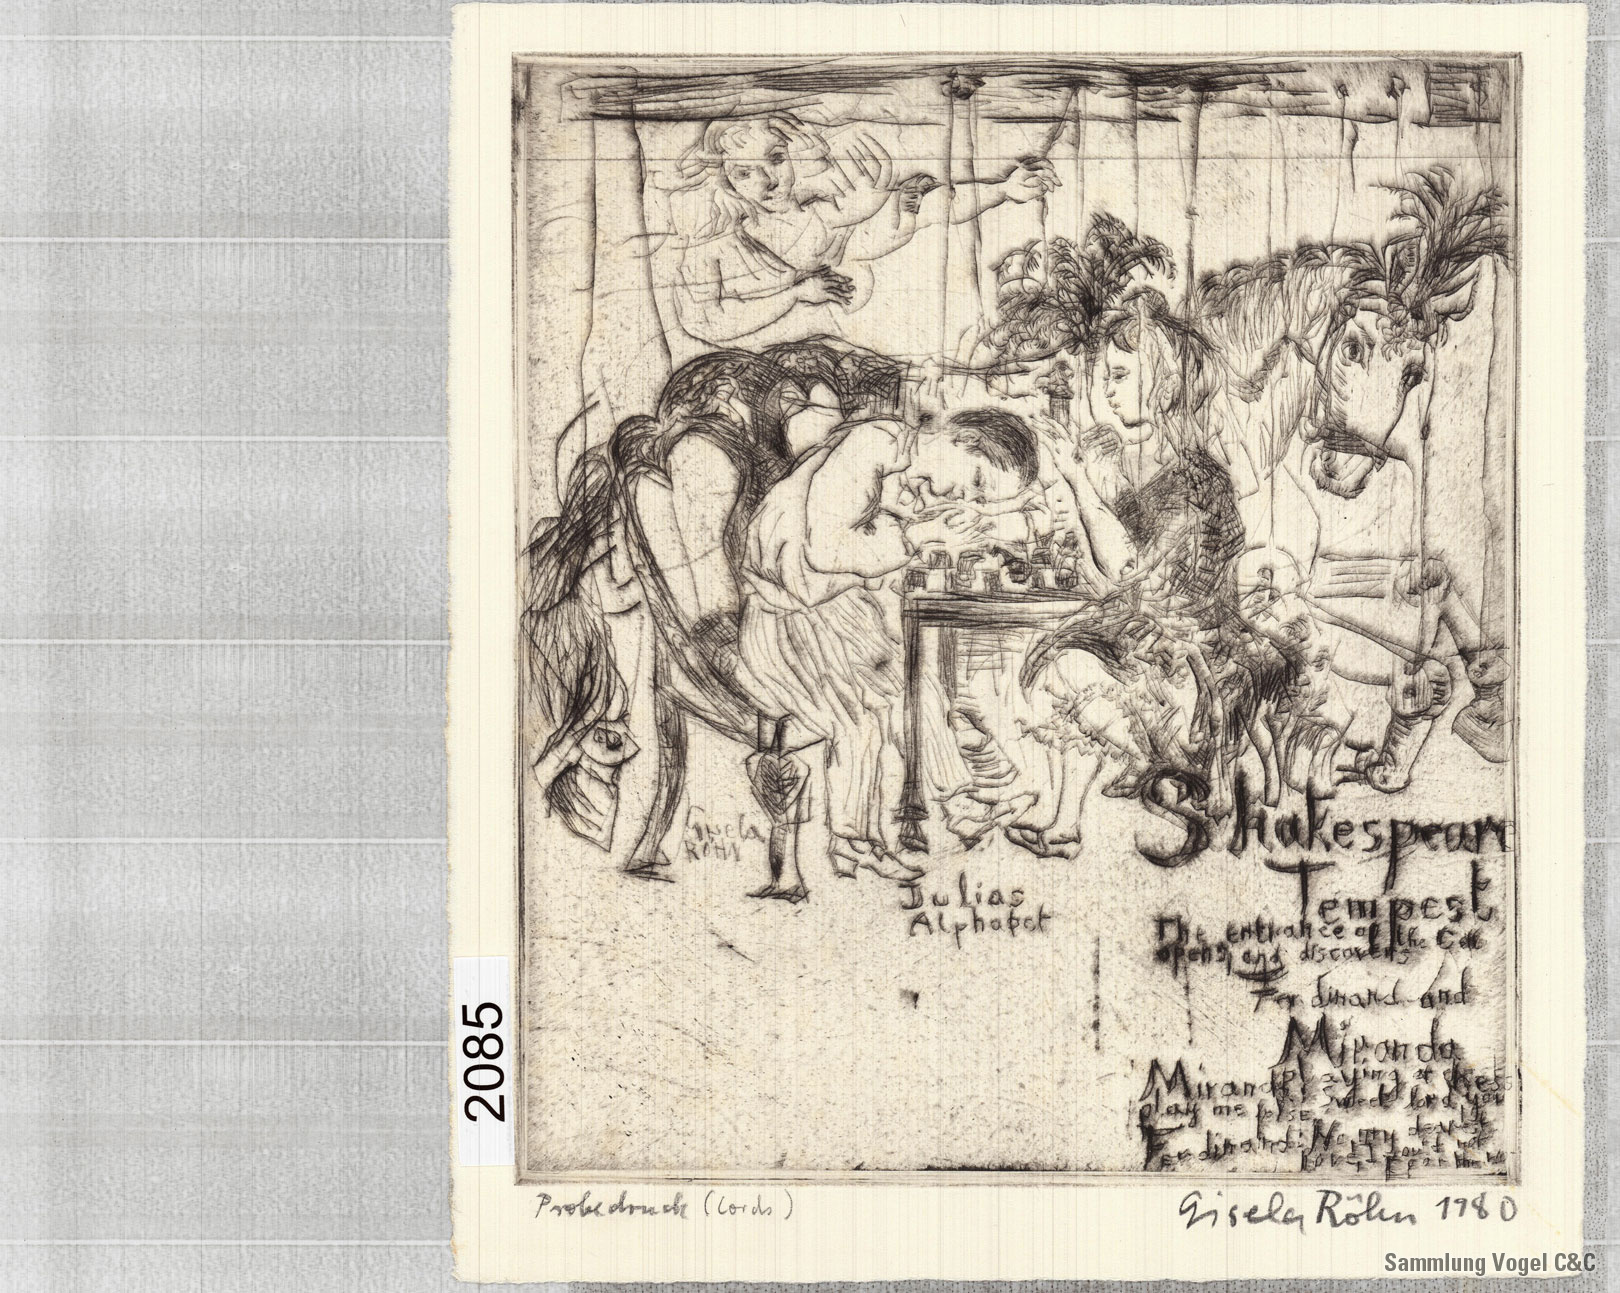 Gisela
RÖHN
Julias
Alphabet
Shakespeare
Tempest
The entrance of the Cell
opens, and discovers
Ferdinand and
Miranda
playing at chess
Miranda: Sweet lord you
play me false
Ferdinand: No my dearest
love I
2085
Probedruck (Cords)
Gisela Röhn 1980
Sammlung Vogel C&C